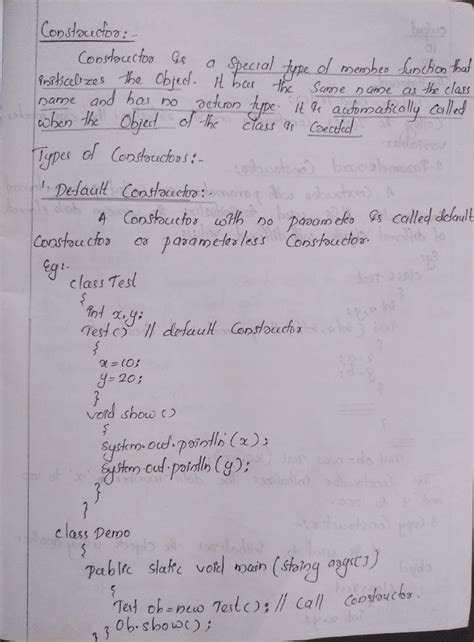 Constructor:-
Constructor is a special type of member function that
initicalizes the Object. It has the same name as the class
name and has no return type. It is automatically called
when the Object of the class is Created.
Types of Constructors:-
1. Default Constructor:-
A Constructor with no parameter is called default
Constructor or parameterless Constructor.
Eg:-
class Test
{
int x,y;
Test() // default Constructor
{
x=10;
y=20;
}
void show()
{
System.out.println(x);
System.out.println(y);
}
}
class Demo
{
public static void main (String args[])
{
Test ob=new Test(); // call Constructor.
} } Ob.show();